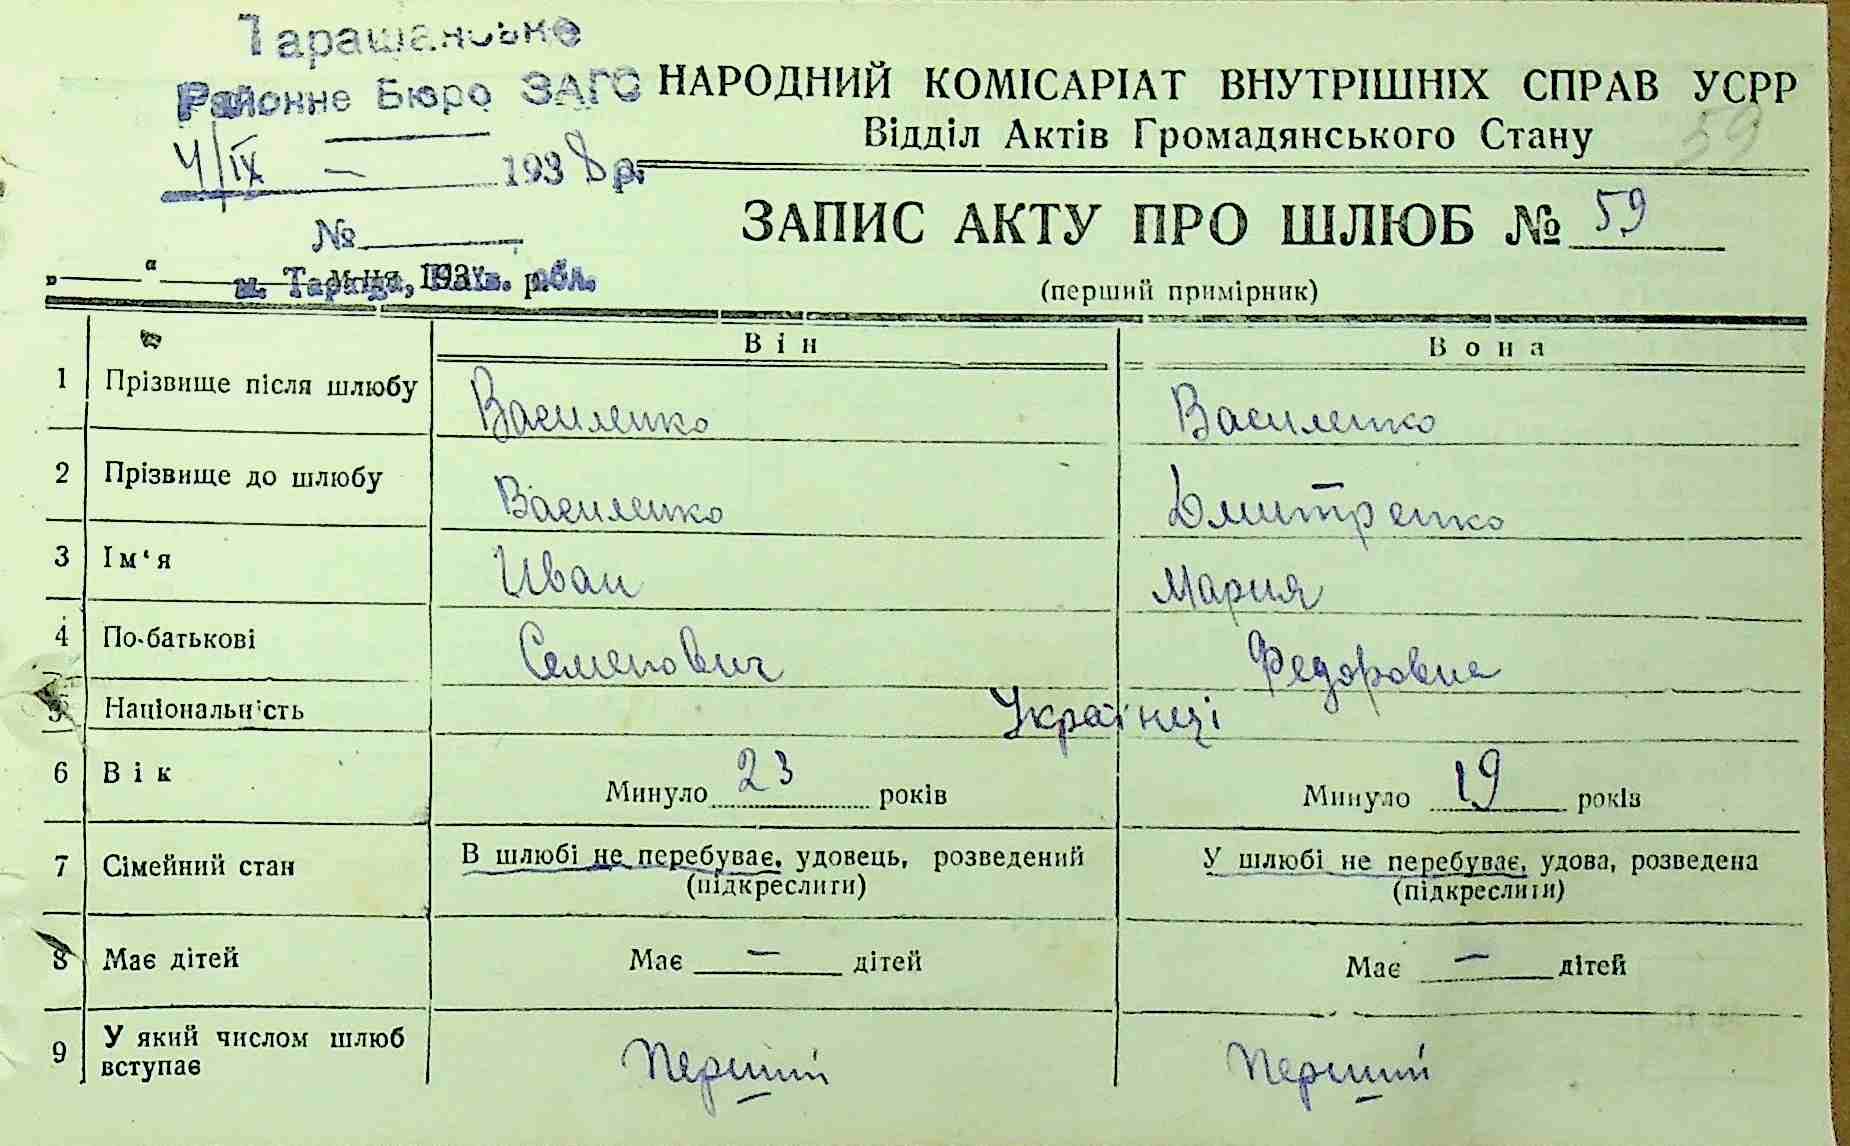 Таращанське
Районне Бюро ЗАГС
4/IX — 1938 р.
№
м. Тараща, обл.
НАРОДНИЙ КОМІСАРІАТ ВНУТРІШНІХ СПРАВ УСРР
Відділ Актів Громадянського Стану
59
ЗАПИС АКТУ ПРО ШЛЮБ № 59
(перший примірник)
Він Вона
1 Прізвище після шлюбу Василенко Василенко
2 Прізвище до шлюбу Василенко Дмитренко
3 Ім‘я Иван Мария
4 По-батькові Семенович Федоровна
5 Національність Українці
6 Вік Минуло 23 років Минуло 19 років
7 Сімейний стан В шлюбі не перебуває, удовець, розведений У шлюбі не перебуває, удова, розведена
(підкреслити) (підкреслити)
8 Має дітей Має — дітей Має — дітей
9 У який числом шлюб
вступає Перший Перший